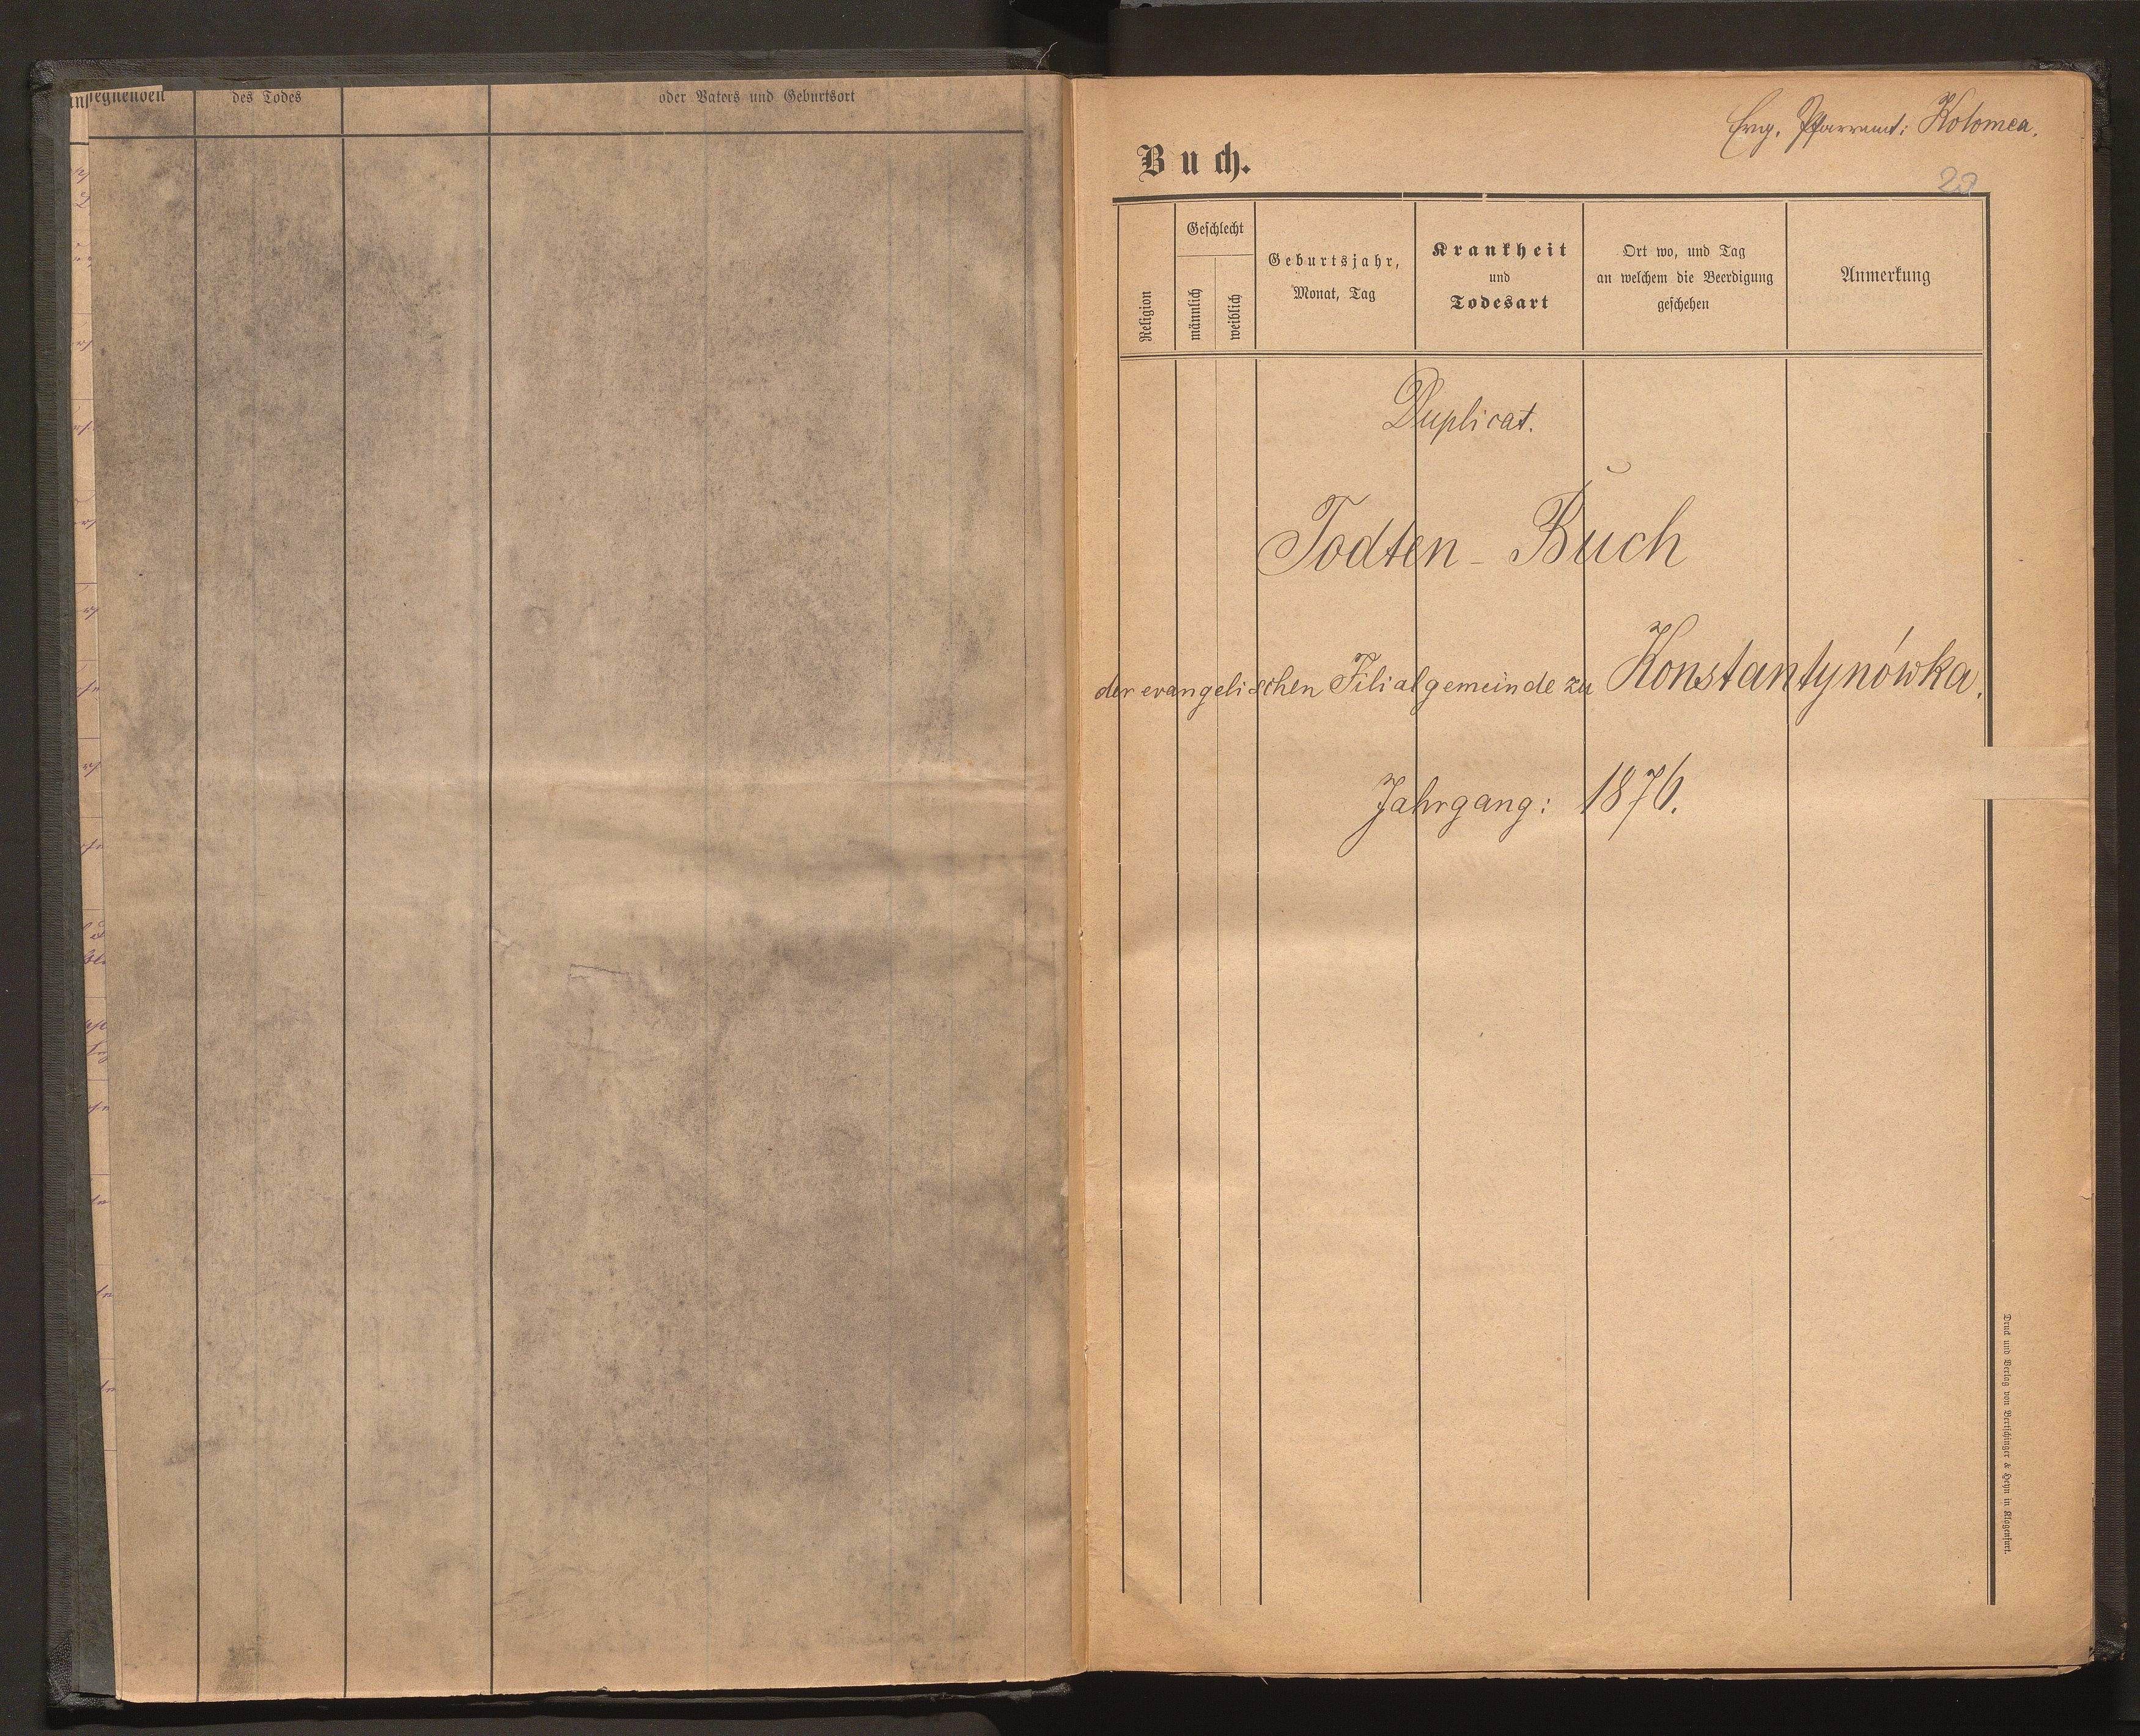 des Todes
oder Vaters und Geburtsort
Evg. Pfarramt: Kolomea.
Buch.
Religion
Geschlecht
männlich
weiblich
Geburtsjahr,
Monat, Tag
Krankheit
und
Todesart
Ort wo, und Tag
an welchem die Beerdigung
geschehen
Anmerkung
Duplicat.
Todten-Buch
der evangelischen Filialgemeinde zu Konstantynówka.
Jahrgang: 1876.
Druck und Verlag von Bertschinger & Heyn in Klagenfurt.